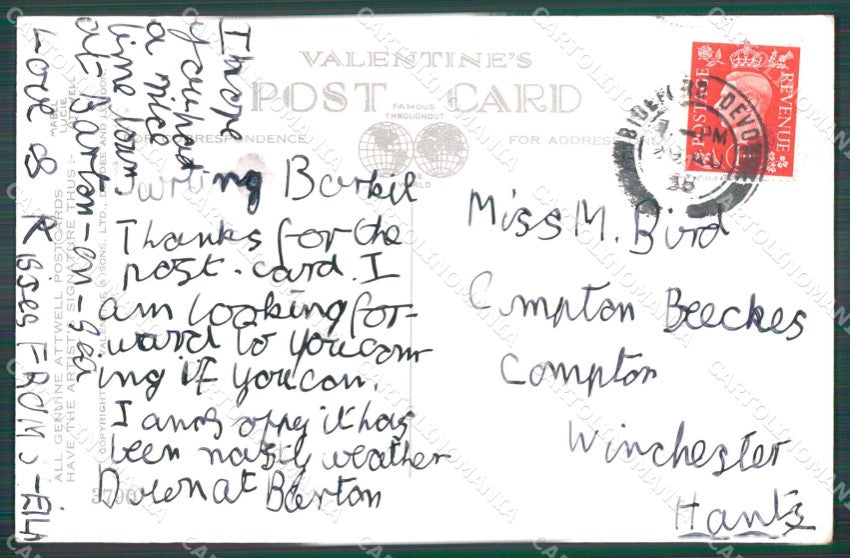 VALENTINE'S
POST CARD
FAMOUS
THROUGHOUT
THE
WORLD
FOR CORRESPONDENCE
FOR ADDRESS
POSTAGE
REVENUE
BIDEFORD DEVON
PM
38
Barkil
Thanks for the
post-card. I
am looking for-
ward to youcom
ing if youcan.
I am soppy it has
been nastly weather
Down at Barton
I hope
you had
a nice
time down
at Barton-on-Sea
Love & Kisses FROM
Miss M. Bird
Compton Beeches
Compton
Winchester
Hants
MABEL
LUCIE
ATTWELL
ALL GENUINE ATTWELL POSTCARDS
HAVE THE ARTIST'S SIGNATURE THUS:-
COPYRIGHT VALENTINE & SONS, LTD. DUNDEE AND LONDON.
CARTOLINOMANIA